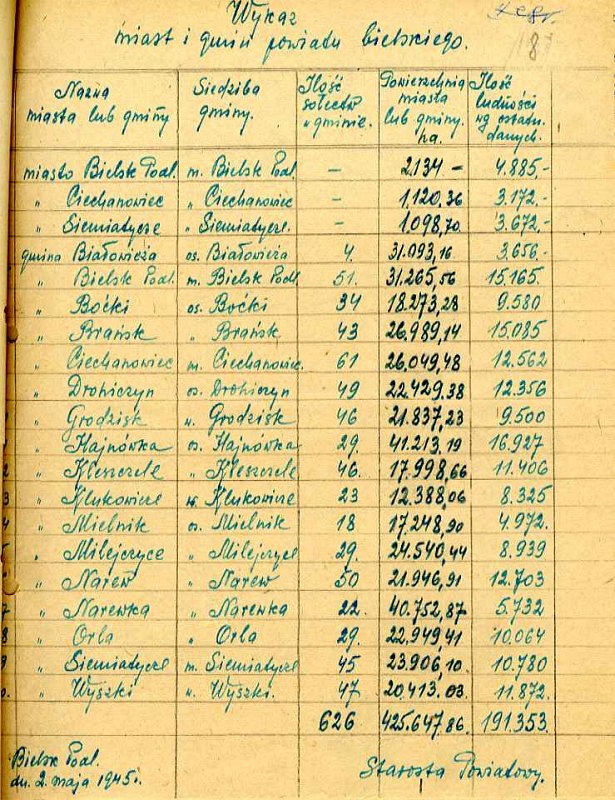 Wykaz
miast i gmin powiatu bielskiego.
8
Nazwa miasta lub gminy | Siedziba gminy. | Ilość sołectw w gminie. | Powierzchnia miasta lub gminy ha. | Ilość ludności wg ostatn. danych.
miasto Bielsk Podl. | m. Bielsk Podl | — | 2134 — | 4.885.-
„ Ciechanowiec | „ Ciechanowiec | — | 1,120,36 | 3.172.-
„ Siemiatycze | „ Siemiatycze. | — | 1.098,70 | 3.672.-
gmina Białowieża | os. Białowieża | 4. | 31.093,16 | 3.656.-
„ Bielsk Podl. | m. Bielsk Podl. | 51. | 31.265,56 | 15.165.
„ Boćki | os. Boćki | 34 | 18.273,28 | 9.580
„ Brańsk | „ Brańsk | 43 | 26.989,14 | 15.085
„ Ciechanowiec | m. Ciechanowiec. | 61 | 26.049,48 | 12.562
„ Drohiczyn | os. Drohiczyn | 49 | 22.429.38 | 12.356
„ Grodzisk | w. Grodzisk | 46 | 21.837,23 | 9.500
„ Hajnówka | os. Hajnówka | 29. | 41.213.19 | 16.927
„ Kleszczele | „ Kleszczele | 46. | 17.998,66 | 11.406
„ Klukowicze | w. Klukowicze | 23 | 12.388,06 | 8.325
„ Mielnik | os. Mielnik | 18 | 17.248,90 | 4.972.
„ Milejczyce | „ Milejczyce | 29. | 24.540,44 | 8.939
„ Narew | „ Narew | 50 | 21.946,91 | 12.703
„ Narewka | „ Narewka | 22. | 40.752,87 | 5.732
„ Orla | „ Orla | 29 | 22,949,41 | 10.064
„ Siemiatycze | m. Siemiatycze | 45 | 23.906,10. | 10.780
„ Wyszki | w. Wyszki. | 47 | 20,413.03 | 11.872.
626 | 425.647.86. | 191353.
Bielsk Podl.
dn. 2. maja 1945r.
Starosta Powiatowy.